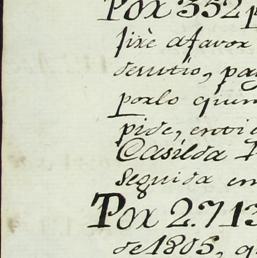 Por 352 p
fixè afavor
devutio, pa
porlo quen
pide, entie
Casilda P
seguida en
Por 2.713
de 1805, q